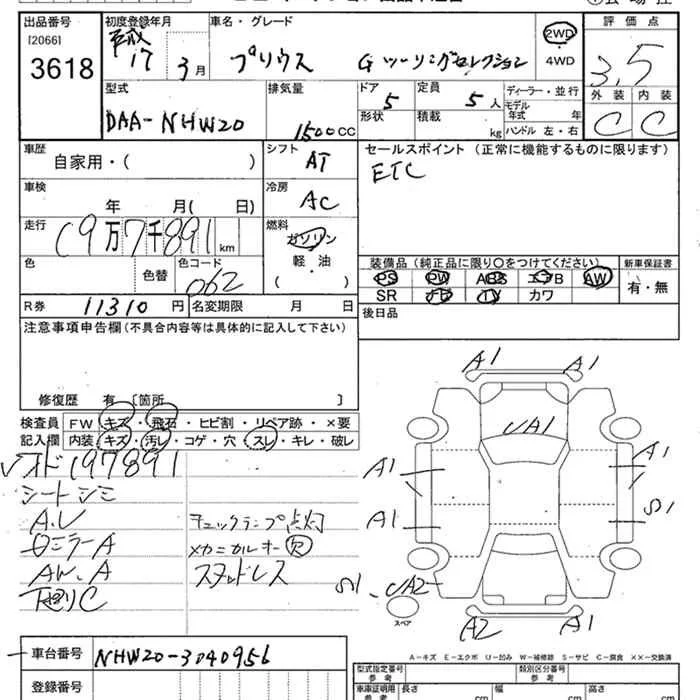 出品番号 初度登録年月 車名・グレード 2WD 評価点
[2066] 平成
3618 17 3月 プリウス Gツーリングセレクション 4WD 3.5
型式 排気量 ドア 5 定員 5人 ディーラー・並行 外装 内装
DAA-NHW20 1500CC 形状 積載 kg モデル年式 年 C C
ハンドル 左・右
車歴 シフト セールスポイント (正常に機能するものに限ります)
自家用・( ) AT ETC
車検 冷房
年 月( 日) AC
走行 燃料
19万7千891km ガソリン
色 色替 色コード 軽・油 装備品 (純正品に限り〇をつけてください) 新車保証書
062 ( ・ ) PS PW ABS エアB AW 有・無
SR ナビ TV カワ
R券 11310円 名変期限 月 日 後日品
注意事項申告欄 (不具合内容等は具体的に記入して下さい)
修復歴 有 〔箇所 〕
検査員 FW キズ・飛石・ヒビ割・リペア跡・×要
記入欄 内装 キズ・汚レ・コゲ・穴・スレ・キレ・破レ
197891
シートシミ
A.U チェックランプ点灯
ロミラーA メカニカルキー欠
AW.A スタッドレス
下廻りC
A1 A1
A1
A1 A1
A1 S1
S1
A2
A2 A1
スペア
A－キズ E－エクボ U－凹み W－補修跡 S－サビ C－腐食 ××－交換済
車台番号 NHW20-3040956
登録番号
型式指定番号 参考 類別区分番号 参考
車庫証明用 参考 長さ cm 幅 cm 高さ cm